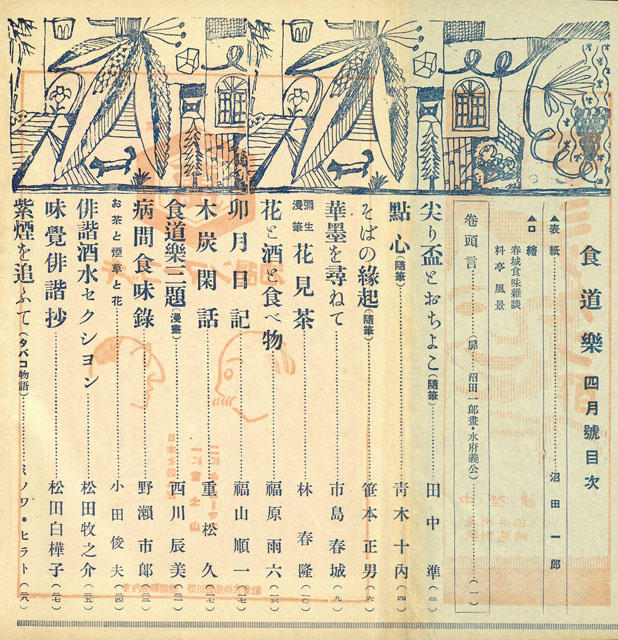 食道樂 四月號目次
▲表紙……沼田一郎
▲口繪
春城食味雜談
料亭風景
卷頭言……(扉……沼田一郎畫・水府義公)……(一)
尖り盃とおちよこ(隨筆)……田中準(二)
點心(隨筆)……靑木十內(四)
そばの緣起(隨筆)……笹本正男(六)
華墨を尋ねて……市島春城(九)
彌生漫筆 花見茶……林春隆(一〇)
花と酒と食べ物……福原雨六
卯月日記……福山順一
木炭閑話……重松久
食道樂三題(漫畫)……西川辰美
病間食味錄……野瀨市郎
お茶と煙草と花……小田俊夫
俳諧酒水セクション……松田牧之介
味覺俳諧抄……松田白樺子
紫煙を追ふて(タバコ物語)……ミノワ・ヒラト